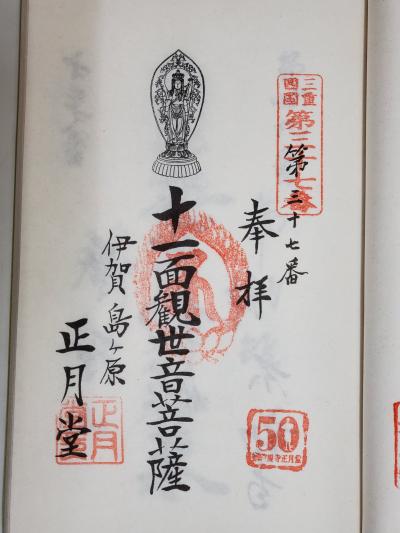 三重
四国
第三十七番
第三十七番
奉拝
十一面観世音菩薩
伊賀 島ヶ原
正月堂
50